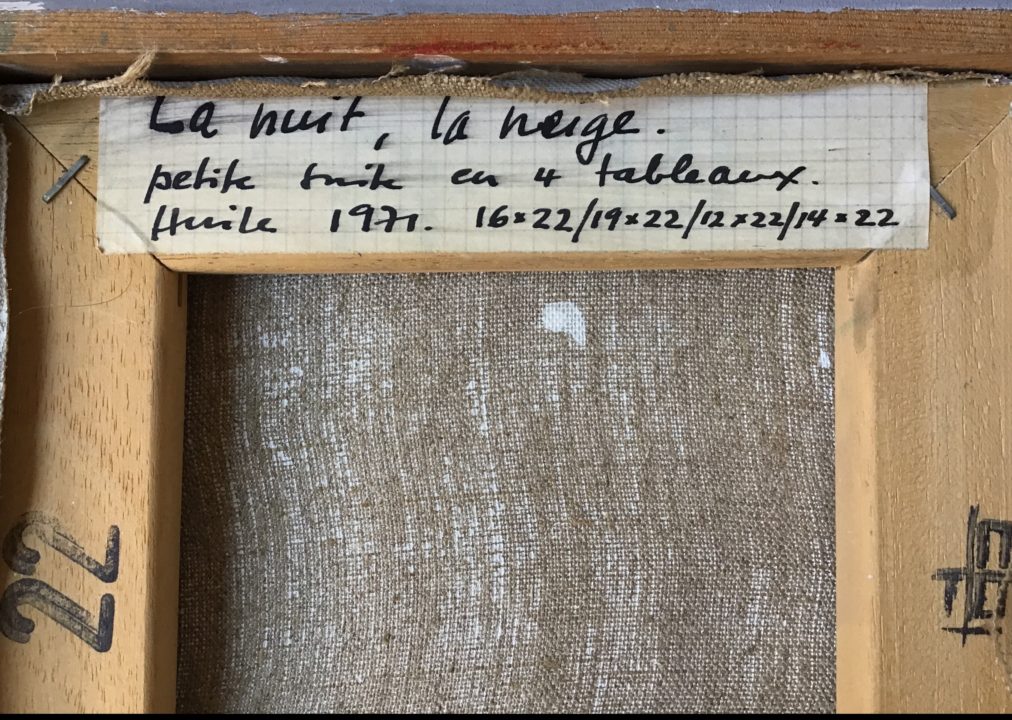 La nuit, la neige.
petite suite en 4 tableaux.
Huile 1971. 16×22/19×22/12×22/14×22
22